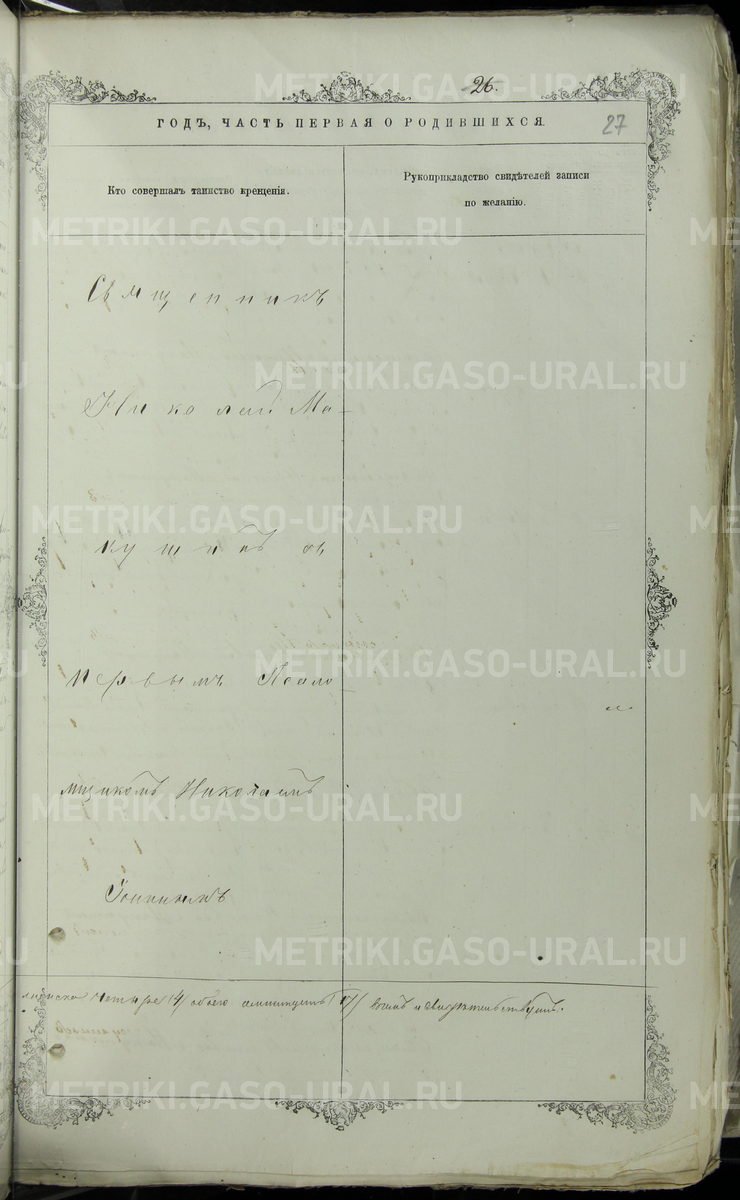 26.
ГОДЪ, ЧАСТЬ ПЕРВАЯ О РОДИВШИХСЯ.
27
Кто совершалъ таинство крещенія.
Рукоприкладство свидѣтелей записи
по желанію.
Священникъ
Николай Ма-
кушинъ съ
первымъ Псало-
мщикомъ Николаемъ
четыре 14/ обоего 17/
METRIKI.GASO-URAL.RU